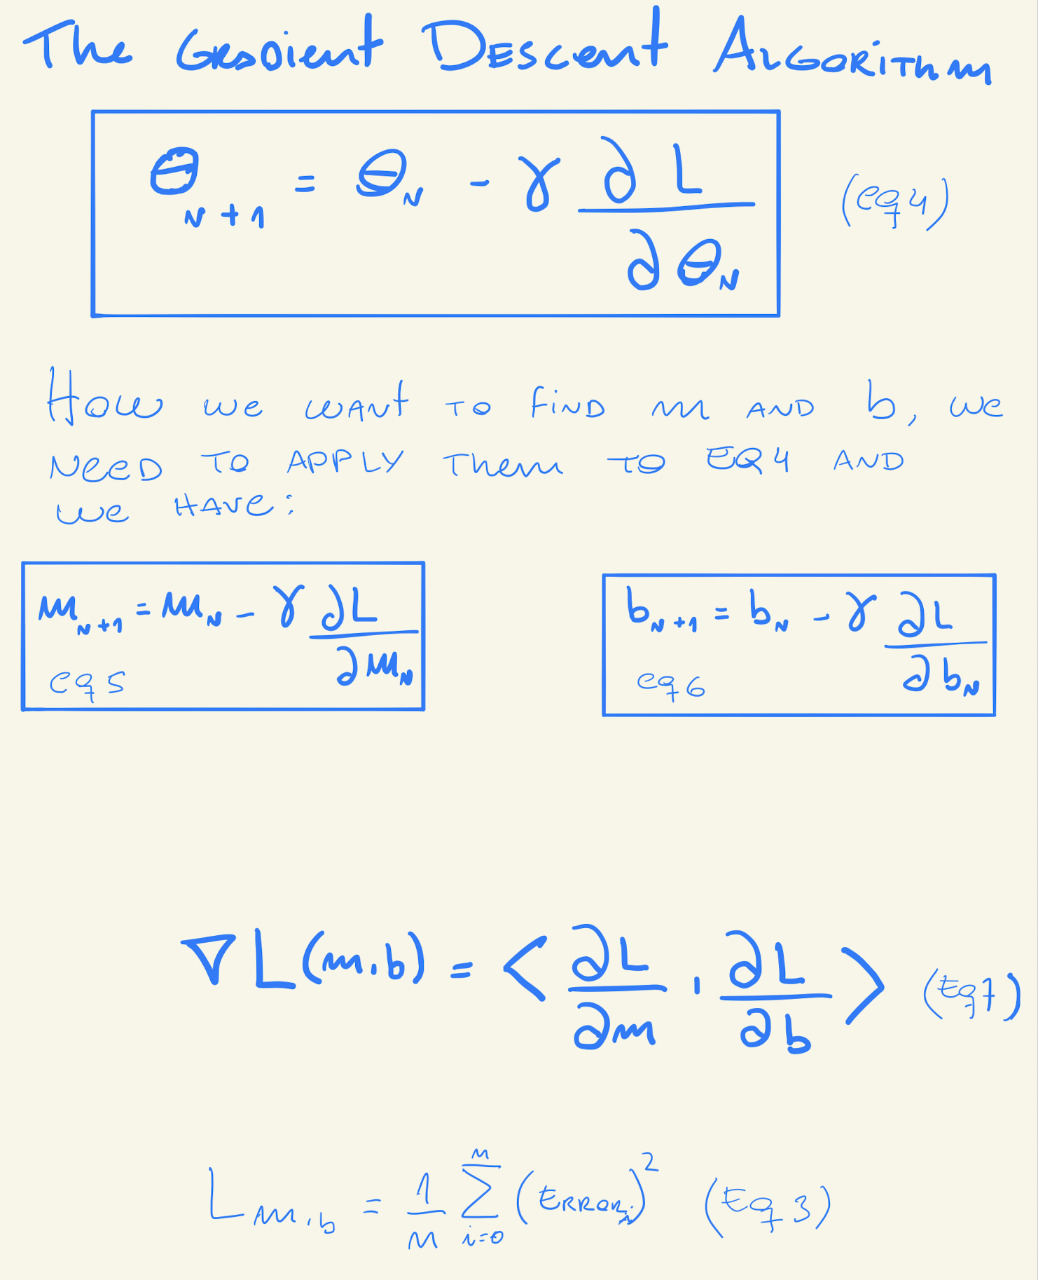 The Gradient Descent Algorithm
θ_{N+1} = θ_N - γ ∂L/∂θ_N (eq 4)
How we want to find m and b, we
need to apply them to eq 4 and
we have:
m_{N+1} = m_N - γ ∂L/∂m_N
eq 5
b_{N+1} = b_N - γ ∂L/∂b_N
eq 6
∇L(m,b) = < ∂L/∂m , ∂L/∂b > (Eq 7)
L_{m,b} = 1/n ∑_{i=0}^{n} (Error_i)² (Eq 3)